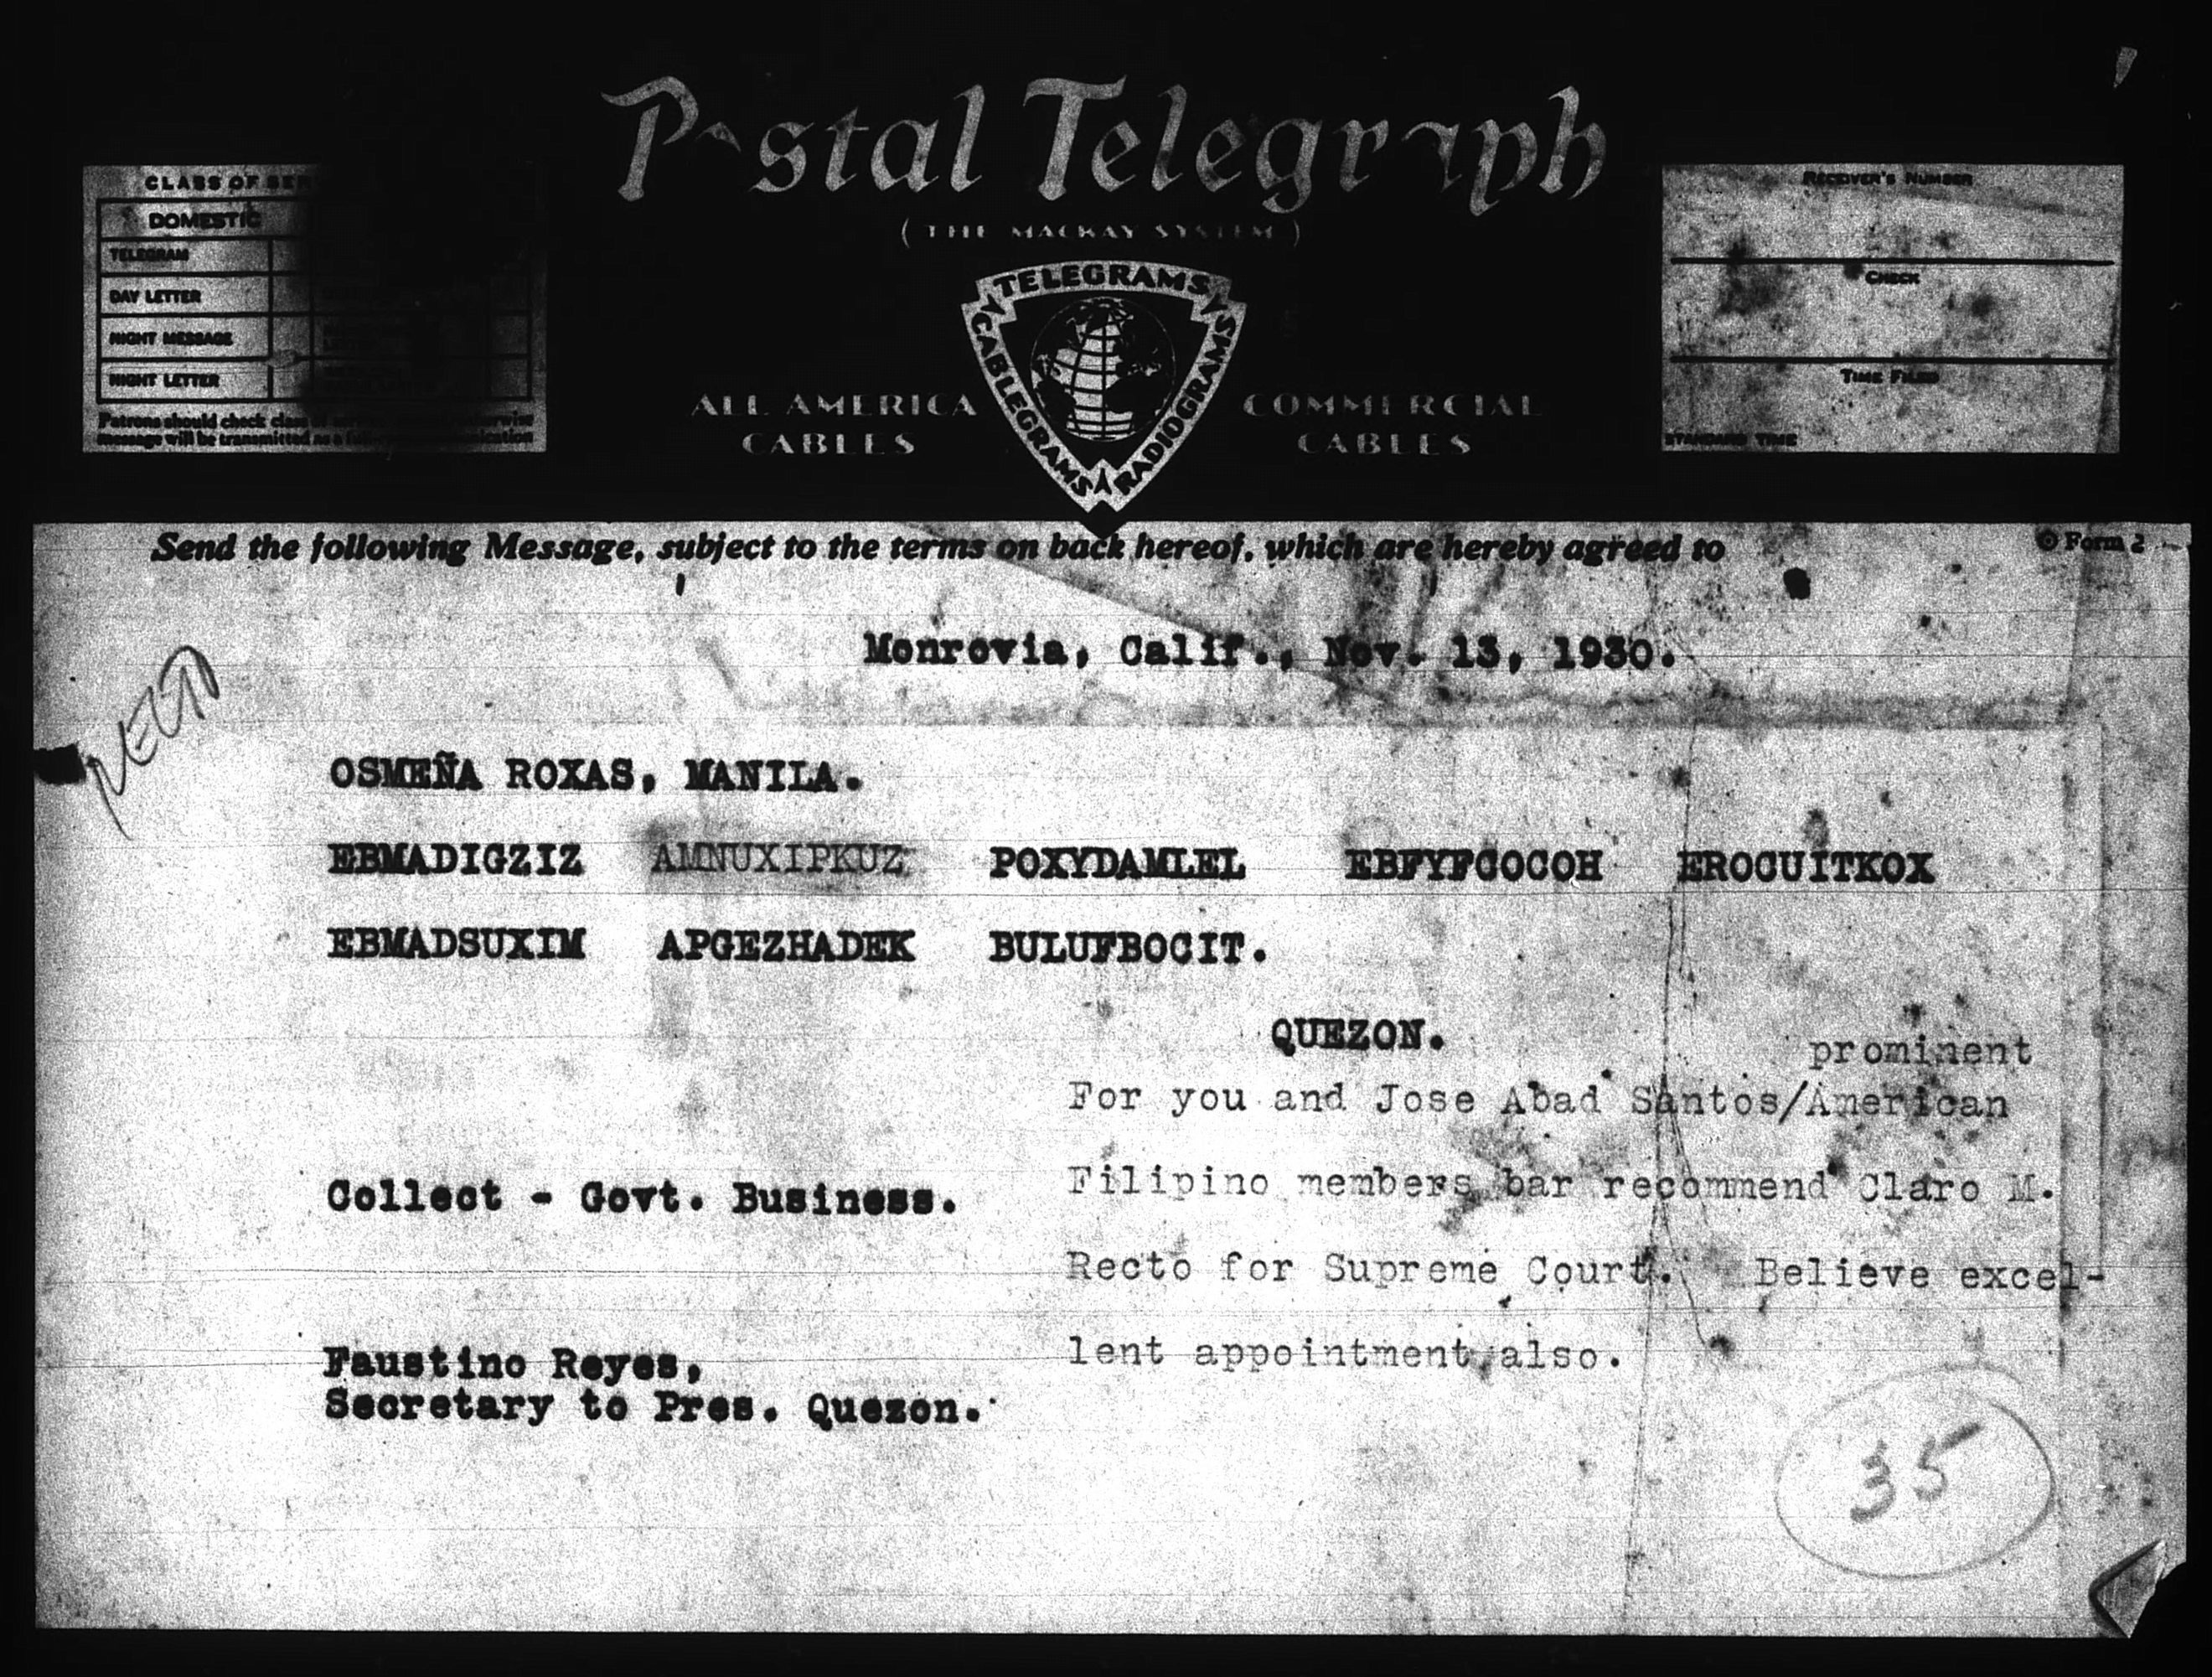 Postal Telegraph
(THE MACKAY SYSTEM)
CLASS OF
DOMESTIC
TELEGRAM
DAY LETTER
NIGHT MESSAGE
NIGHT LETTER
Patrons should check class
message will be transmitted as a
TELEGRAMS
CABLEGRAMS
RADIOGRAMS
ALL AMERICA
CABLES
COMMERCIAL
CABLES
RECEIVER'S NUMBER
CHECK
TIME FILED
STANDARD TIME
Send the following Message, subject to the terms on back hereof, which are hereby agreed to
Form 2
Monrovia, Calif., Nov. 13, 1930.
OSMEÑA ROXAS, MANILA.
EBMADIGZIZ AMNUXIPKUZ POXYDAMLEL EBFYFCOCOH EROCUITKOX
EBMADSUXIM APGEZHADEK BULUFBOCIT.
QUEZON.
prominent
For you and Jose Abad Santos/American
Filipino members bar recommend Claro M.
Recto for Supreme Court. Believe excel-
lent appointment also.
Collect - Govt. Business.
Faustino Reyes,
Secretary to Pres. Quezon.
35